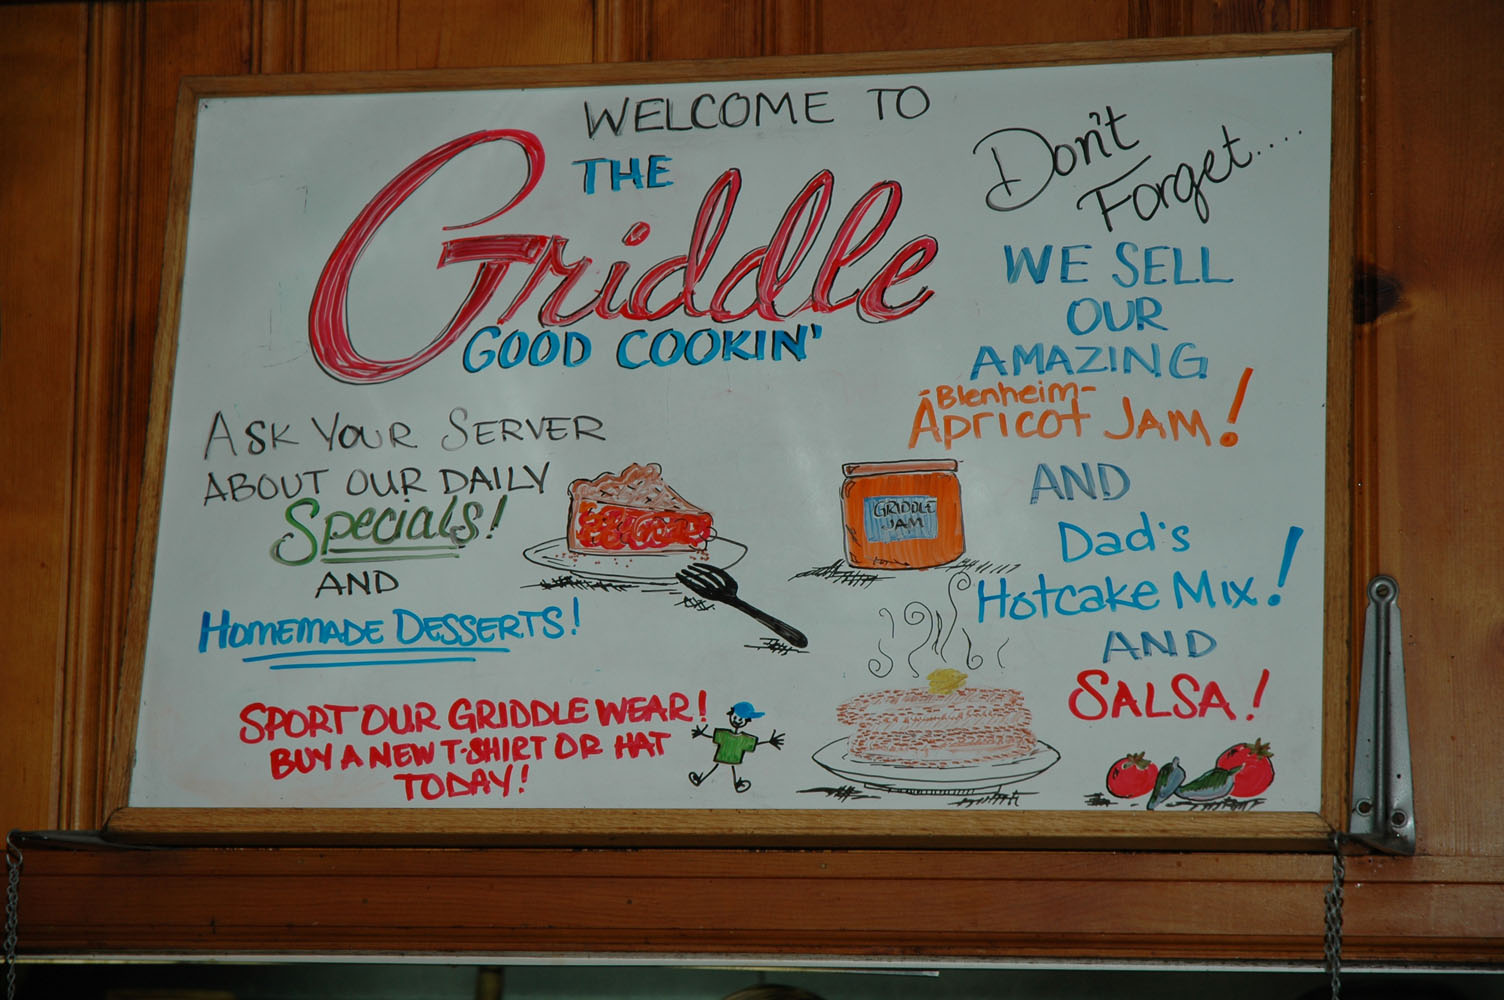 WELCOME TO
THE
Griddle
GOOD COOKIN'
ASK YOUR SERVER
ABOUT OUR DAILY
Specials!
AND
HOMEMADE DESSERTS!
SPORT OUR GRIDDLE WEAR!
BUY A NEW T-SHIRT OR HAT
TODAY!
Don't
Forget....
WE SELL
OUR
AMAZING
-Blenheim-
APRICOT JAM!
GRIDDLE
JAM
AND
Dad's
Hotcake Mix!
AND
SALSA!